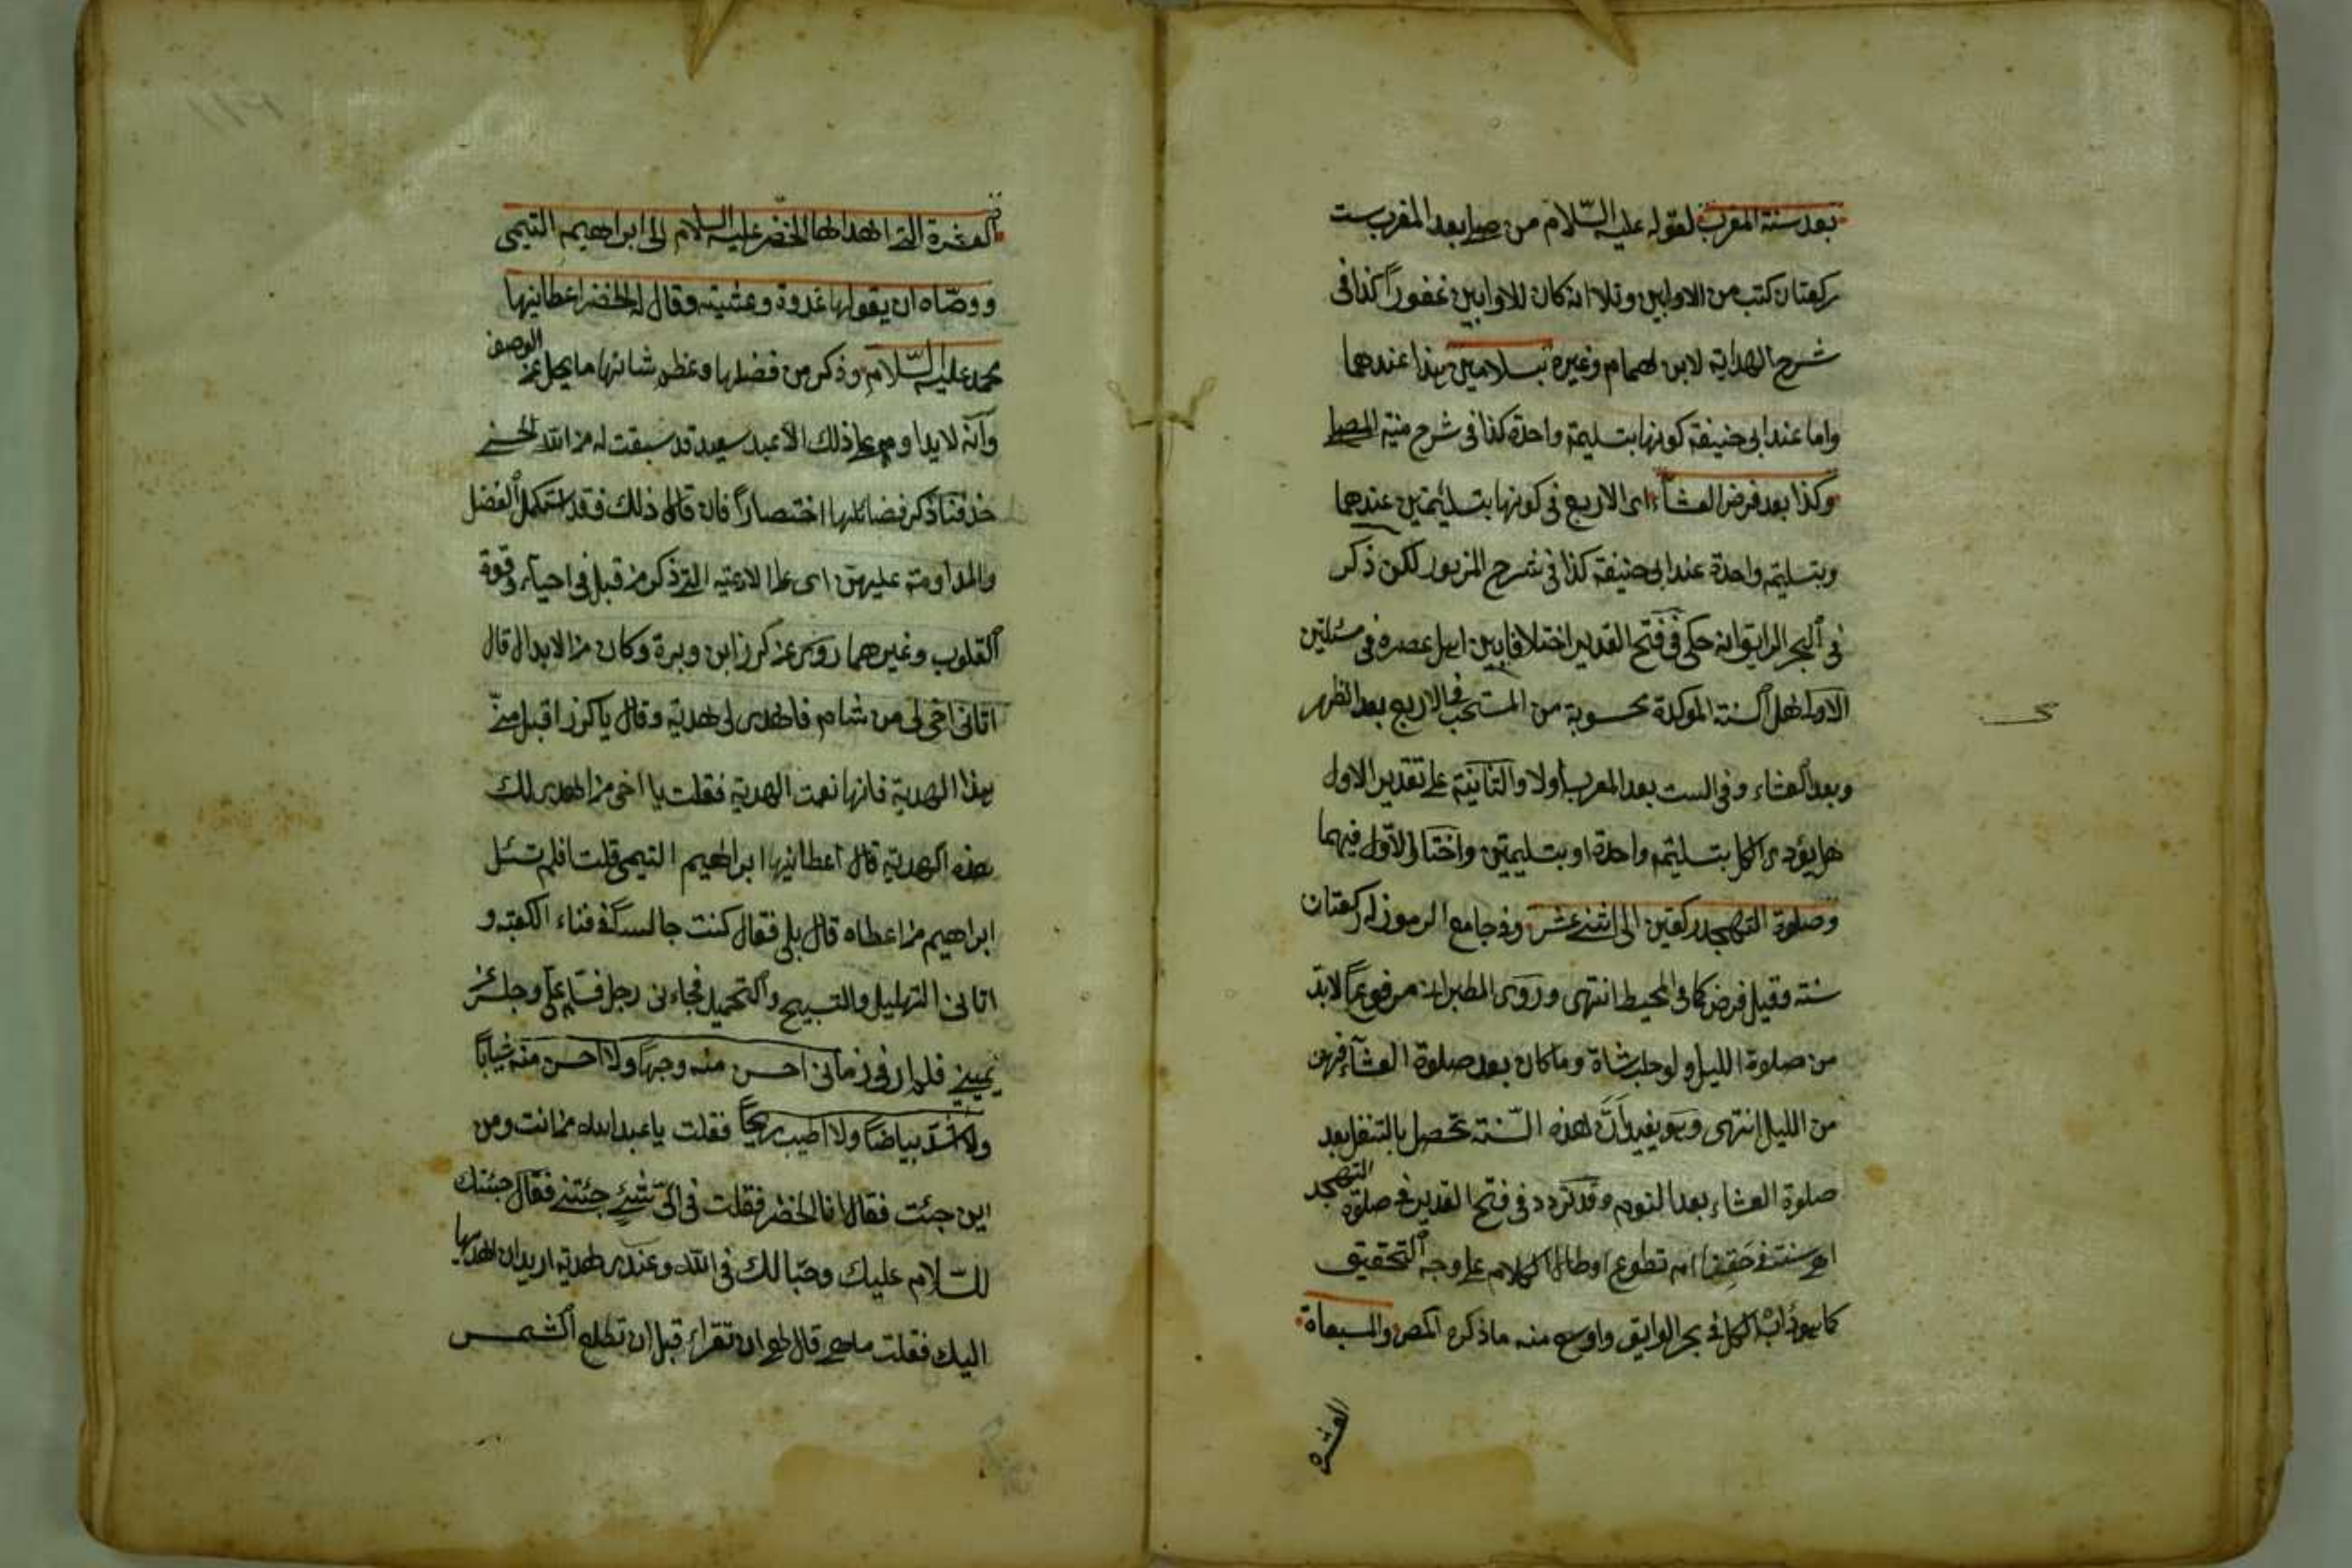 بعد سنة المغرب لقوله عليه السّلام من صلى بعد المغرب ست
ركعتان كتب من الاوابين وتلا انه كان للاوابين غفوراً كذا فى
شرح الهداية لابن لهمام وغيره بسلامين هذا عندهما
واما عند ابى حنيفة كونها بتسليمة واحدة كذا فى شرح منية المصلى
وكذا بعد فرض العشاء اى الاربع فى كونها بتسليمتين عندهما
وبتسليمة واحدة عند ابى حنيفة كذا فى شرح المزبور لكن ذكر
فى البحر الرايق انه حكى فى فتح القدير اختلافا بين اهل عصره فى مسئلتين
الاولى هل السنة المؤكدة محسوبة من المستحب فى الاربع بعد الظهر
وبعد العشاء وفى الست بعد المغرب اولا والثانية على تقدير الاول
هل يؤدى الكل بتسليمة واحدة او بتسليمتين واختار الاوّل فيهما
وصلوة التهجد ركعتين الى اثنى عشر وفى جامع الرموز له ركعتان
سنة وقيل فرض كما فى المحيط انتهى وروى الطبرانى مرفوعاً لابدّ
من صلوة الليل ولو حلب شاة وما كان بعد صلوة العشاء فهى
من الليل انتهى وهو يفيد أنّ هذه السّنة تحصل بالتنفل بعد
صلوة العشاء بعد النوم وقد تردد فى فتح القدير فى صلوة التهجد
اهى سنة فى حقنا ام تطوع اوطال الكلام على وجه التحقيق
كما هو دأبه الكل فى بحر الرايق واوسع منه ما ذكره المص والمسبعاة
العشرة
العشرة التى اهداها الخضر عليه السلام الى ابراهيم التيمى
ووصّاه ان يقولها غدوة وعشية وقال له الخضر اعطانيها
محمد عليه السّلام وذكر من فضلها وعظم شانها ما يجل عن الوصف
وانّه لا يداوم على ذلك الا عبد سعيد قد سبقت له من الله الحسنى
حذفنا ذكر فضائلها اختصاراً فان قال ذلك فقد استكمل الفضل
والمداومة عليهن اى على الادعية التى ذكر من قبل فى احياء وقوة
القلوب وغيرهما روى عن كرز ابن وبرة وكان من الابدال قال
اتانى اخى لى من شام فاهدى لى هدية وقال يا كرز اقبل منّى
هذا الهدية فانها نعمت الهدية فقلت يا اخى من اهدى لك
هذه الهدية قال اعطانيها ابراهيم التيمى قلت افلم تسئل
ابراهيم من اعطاه قال بلى فقال كنت جالسا فى فناء الكعبة و
انا فى التهليل والتسبيح والتحميد فجاءنى رجل فسلم علىّ وجلس عن
يمينى فلم ار فى زمانى احسن منه وجهاً ولا احسن منه ثياباً
ولا اشدّ بياضاً ولا اطيب ريحاً فقلت يا عبد الله من انت ومن
اين جئت فقال انا الخضر فقلت فى اىّ شئ جئتنى فقال جئتك
للسّلام عليك وحبّا لك فى الله وعندى هدية اريد ان اهديها
اليك فقلت ما هى قال هى ان تقراء قبل ان تطلع الشمس